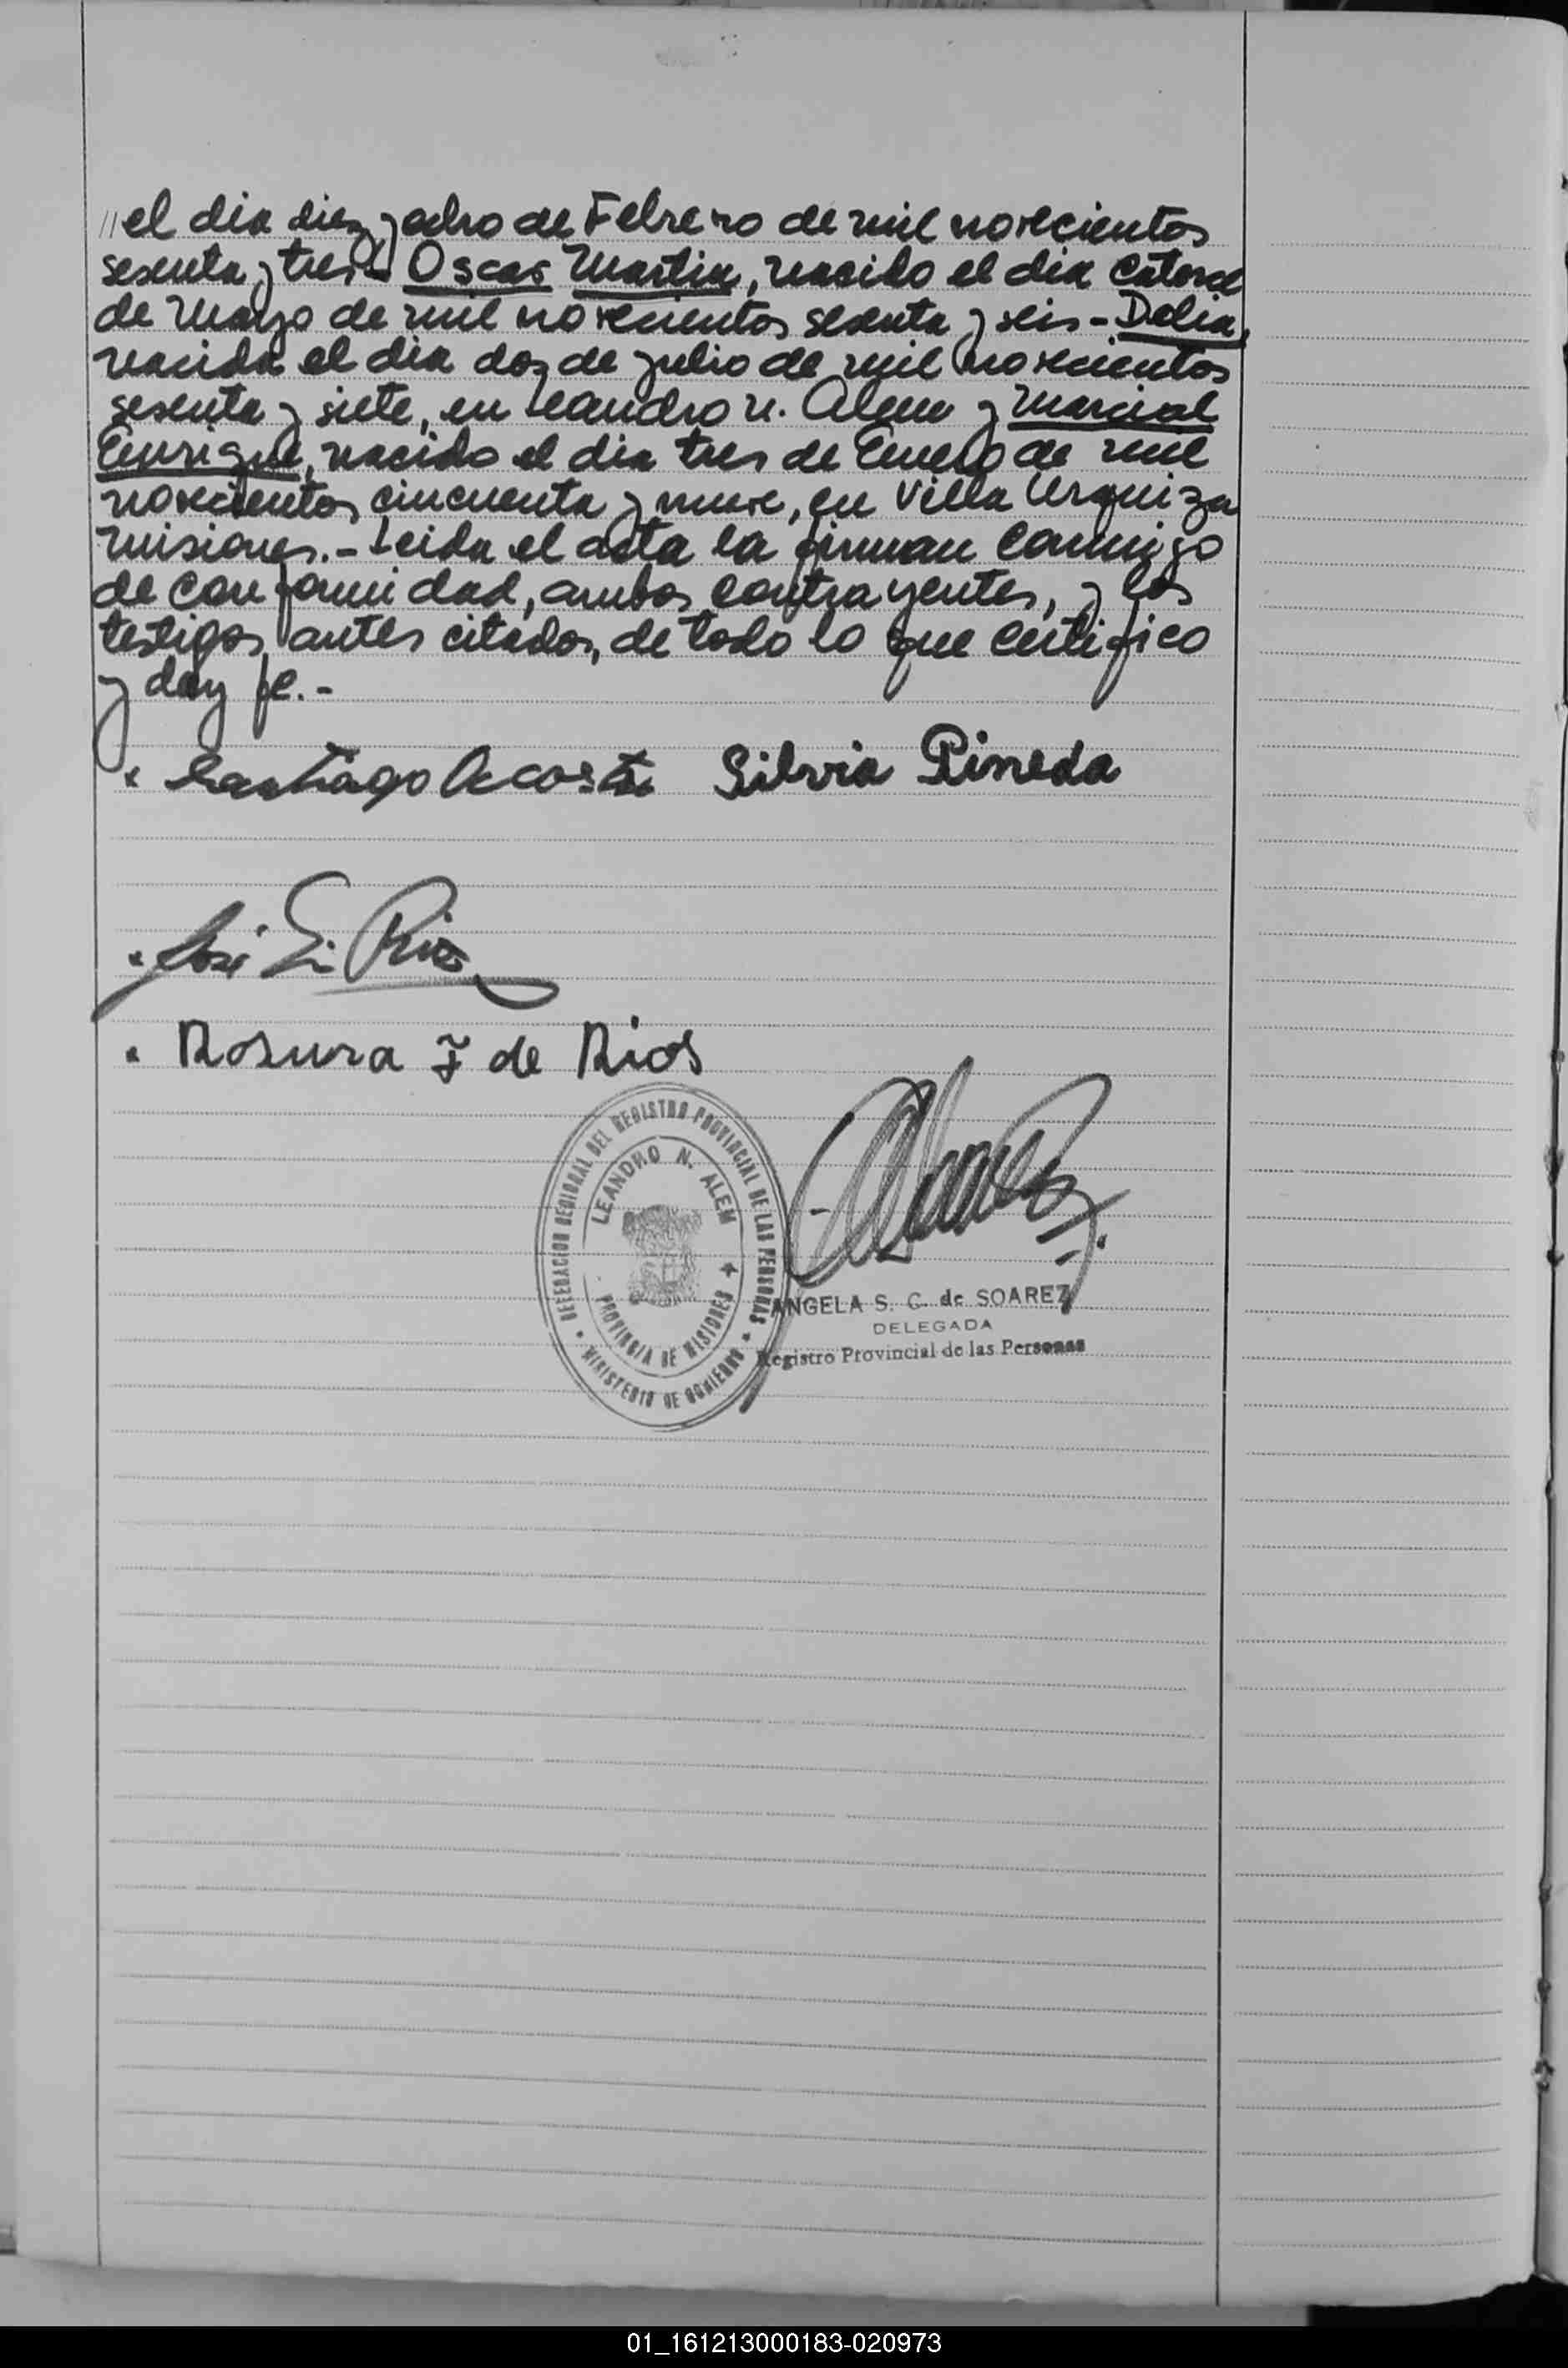 // el dia diez y ocho de Febrero de mil novecientos
sesenta y tres - Oscar Martin, nacido el dia catorce
de Mayo de mil novecientos sesenta y seis - Delia,
nacida el dia dos de Julio de mil novecientos
sesenta y siete, en Leandro N. Alem y Marcial
Enrique, nacido el dia tres de Enero de mil
novecientos cincuenta y nueve, en Villa Urquiza
Misiones. - Leida el acta la firman conmigo
de conformidad, ambos contrayentes, y los
testigos antes citados, de todo lo que certifico
y doy fe. -
Santiago Acosta Silvia Pineda
José E. Rios
Rosura F de Rios
DELEGACION REGIONAL DEL REGISTRO PROVINCIAL DE LAS PERSONAS
LEANDRO N. ALEM
PROVINCIA DE MISIONES
MINISTERIO DE GOBIERNO
ANGELA S. C. de SOAREZ
DELEGADA
Registro Provincial de las Personas
01_161213000183-020973